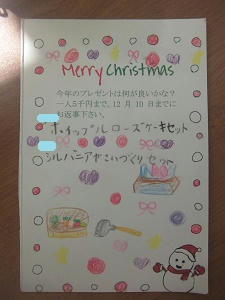 Merry Christmas
今年のプレゼントは何が良いかな？
一人5千円まで。12 月 10 日までに
お返事下さい。
ホイップルローズケーキセット
シルバニアやさいづくりセット